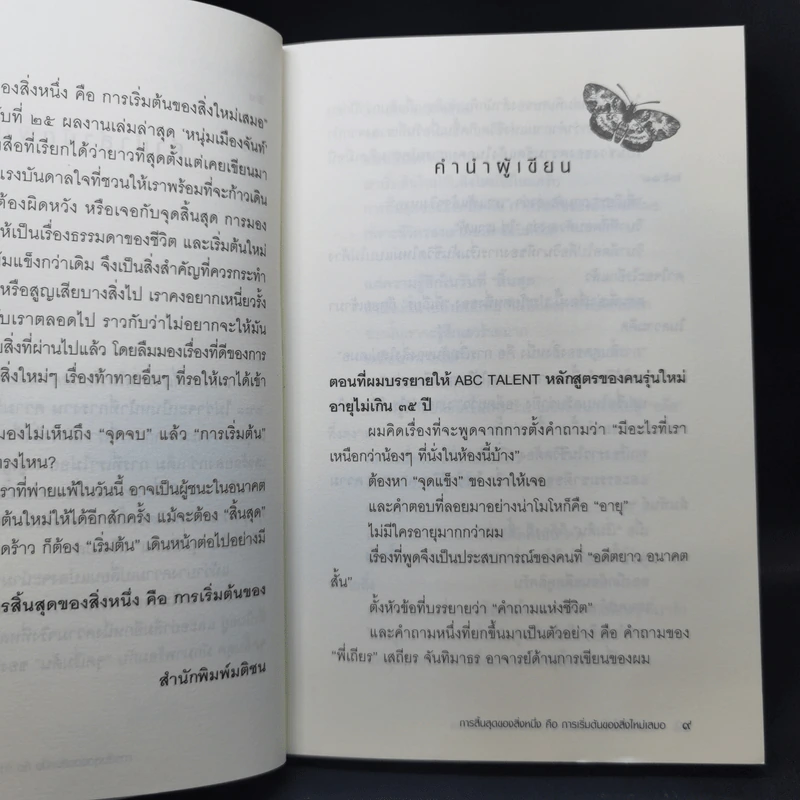 องสิ่งหนึ่ง คือ การเริ่มต้นของสิ่งใหม่เสมอ”
ับที่ ๒๕ ผลงานเล่มล่าสุด ‘หนุ่มเมืองจันท์’
สือที่เรียกได้ว่ายาวที่สุดตั้งแต่เคยเขียนมา
แรงบันดาลใจที่ชวนให้เราพร้อมที่จะก้าวเดิน
ต้องผิดหวัง หรือเจอกับจุดสิ้นสุด การมอง
ให้เป็นเรื่องธรรมดาของชีวิต และเริ่มต้นใหม่
ข้มแข็งกว่าเดิม จึงเป็นสิ่งสำคัญที่ควรกระทำ
หรือสูญเสียบางสิ่งไป เราคงอยากเหนี่ยวรั้ง
ับเราตลอดไป ราวกับว่าไม่อยากจะให้มัน
ยสิ่งที่ผ่านไปแล้ว โดยลืมมองเรื่องที่ดีของการ
สิ่งใหม่ๆ เรื่องท้าทายอื่นๆ ที่รอให้เราได้เข้า
มองไม่เห็นถึง “จุดจบ” แล้ว “การเริ่มต้น”
ตรงไหน?
ราที่พ่ายแพ้ในวันนี้ อาจเป็นผู้ชนะในอนาคต
ต้นใหม่ให้ได้อีกสักครั้ง แม้จะต้อง “สิ้นสุด”
ดร้าว ก็ต้อง “เริ่มต้น” เดินหน้าต่อไปอย่างมี
รสิ้นสุดของสิ่งหนึ่ง คือ การเริ่มต้นของ
สำนักพิมพ์มติชน
คำนำผู้เขียน
ตอนที่ผมบรรยายให้ ABC TALENT หลักสูตรของคนรุ่นใหม่
อายุไม่เกิน ๓๕ ปี
ผมคิดเรื่องที่จะพูดจากการตั้งคำถามว่า “มีอะไรที่เรา
เหนือกว่าน้องๆ ที่นั่งในห้องนี้บ้าง”
ต้องหา “จุดแข็ง” ของเราให้เจอ
และคำตอบที่ลอยมาอย่างน่าโมโหก็คือ “อายุ”
ไม่มีใครอายุมากกว่าผม
เรื่องที่พูดจึงเป็นประสบการณ์ของคนที่ “อดีตยาว อนาคต
สั้น”
ตั้งหัวข้อที่บรรยายว่า “คำถามแห่งชีวิต”
และคำถามหนึ่งที่ยกขึ้นมาเป็นตัวอย่าง คือ คำถามของ
“พี่เถียร” เสถียร จันทิมาธร อาจารย์ด้านการเขียนของผม
การสิ้นสุดของสิ่งหนึ่ง คือ การเริ่มต้นของสิ่งใหม่เสมอ ๙